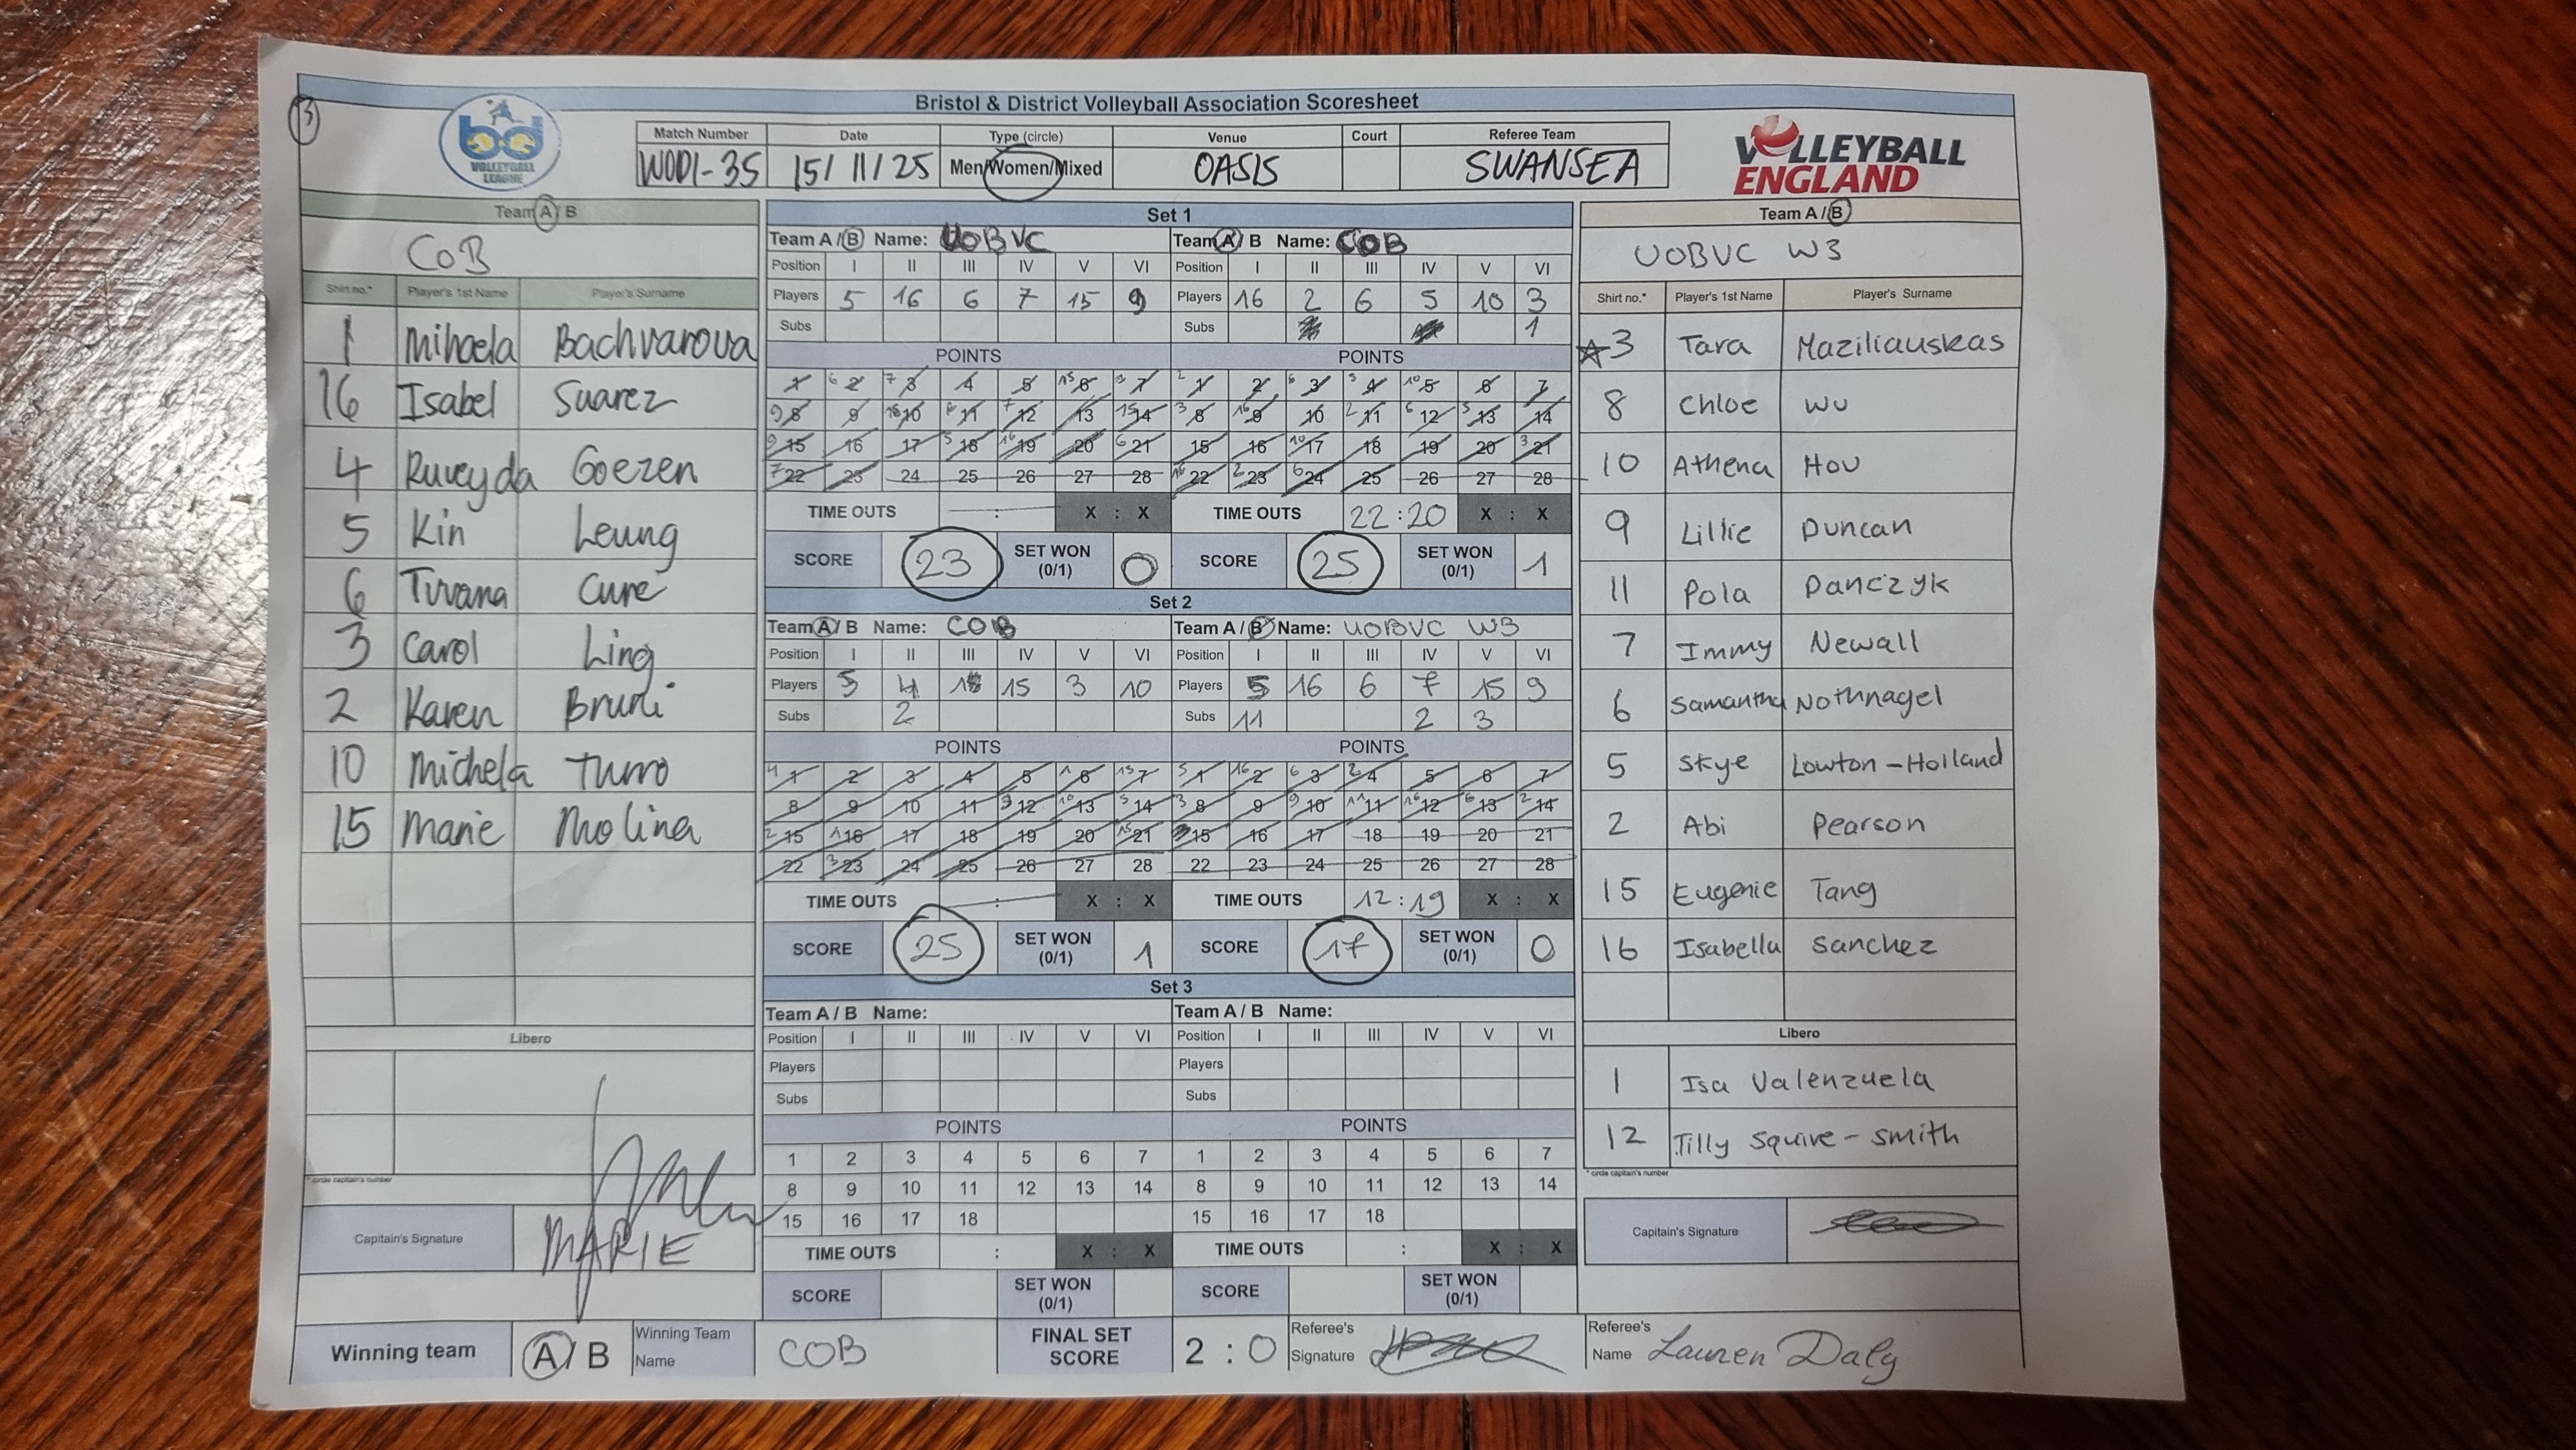 3
Bristol & District Volleyball Association Scoresheet
bd
VOLLEYBALL
LEAGUE
Match Number Date Type (circle) Venue Court Referee Team
WOD1-35 15/11/25 Men/Women/Mixed OASIS SWANSEA
VOLLEYBALL
ENGLAND
Team A / B
COB
Shirt no.* Player's 1st Name Player's Surname
1 Mihaela Bachvarova
16 Isabel Suarez
4 Ruveyda Goezen
5 Kin Leung
6 Tuvana Cure
3 Carol Ling
2 Karen Bruni
10 Michela Turro
15 Marie Molina
Libero
* circle captain's number
Capitain's Signature MARIE
Set 1
Team A / B Name: UOBVC
Position I II III IV V VI
Players 5 16 6 7 15 9
Subs
POINTS
1 6 2 7 3 4 5 15 6 7
9 8 9 16 10 6 11 7 12 13 15 14
9 15 16 17 5 18 16 19 20 6 21
7 22 23 24 25 26 27 28
TIME OUTS : X : X
SCORE 23 SET WON (0/1) 0
Team A / B Name: COB
Position I II III IV V VI
Players 16 2 6 5 10 3
Subs 1
POINTS
2 1 2 6 3 5 4 10 5 6 7
3 8 16 9 10 2 11 6 12 5 13 14
15 16 10 17 18 19 20 3 21
16 22 2 23 6 24 25 26 27 28
TIME OUTS 22:20 X : X
SCORE 25 SET WON (0/1) 1
Set 2
Team A / B Name: COB
Position I II III IV V VI
Players 5 4 15 3 10
Subs 2
POINTS
4 1 2 3 4 5 1 6 15 7
8 9 10 11 3 12 10 13 5 14
2 15 1 16 17 18 19 20 15 21
22 3 23 24 25 26 27 28
TIME OUTS : X : X
SCORE 25 SET WON (0/1) 1
Team A / B Name: UOBVC W3
Position I II III IV V VI
Players 5 16 6 7 15 9
Subs 11 2 3
POINTS
5 1 16 2 6 3 2 4 5 6 7
3 8 9 9 10 11 11 16 12 6 13 2 14
15 16 17 18 19 20 21
22 23 24 25 26 27 28
TIME OUTS 12:19 X : X
SCORE 17 SET WON (0/1) 0
Set 3
Team A / B Name:
Position I II III IV V VI
Players
Subs
POINTS
1 2 3 4 5 6 7
8 9 10 11 12 13 14
15 16 17 18
TIME OUTS : X : X
SCORE SET WON (0/1)
Team A / B Name:
Position I II III IV V VI
Players
Subs
POINTS
1 2 3 4 5 6 7
8 9 10 11 12 13 14
15 16 17 18
TIME OUTS : X : X
SCORE SET WON (0/1)
Team A / B
UOBVC W3
Shirt no.* Player's 1st Name Player's Surname
3 Tara Maziliauskas
8 Chloe Wu
10 Athena Hou
9 Lillie Duncan
11 Pola Danczyk
7 Immy Newall
6 Samantha Nothnagel
5 Skye Lowton-Holland
2 Abi Pearson
15 Eugenie Tang
16 Isabella Sanchez
Libero
1 Isa Valenzuela
12 Tilly Squire-Smith
* circle captain's number
Capitain's Signature
Winning team A / B Winning Team Name COB FINAL SET SCORE 2 : 0 Referee's Signature Referee's Name Lauren Daly